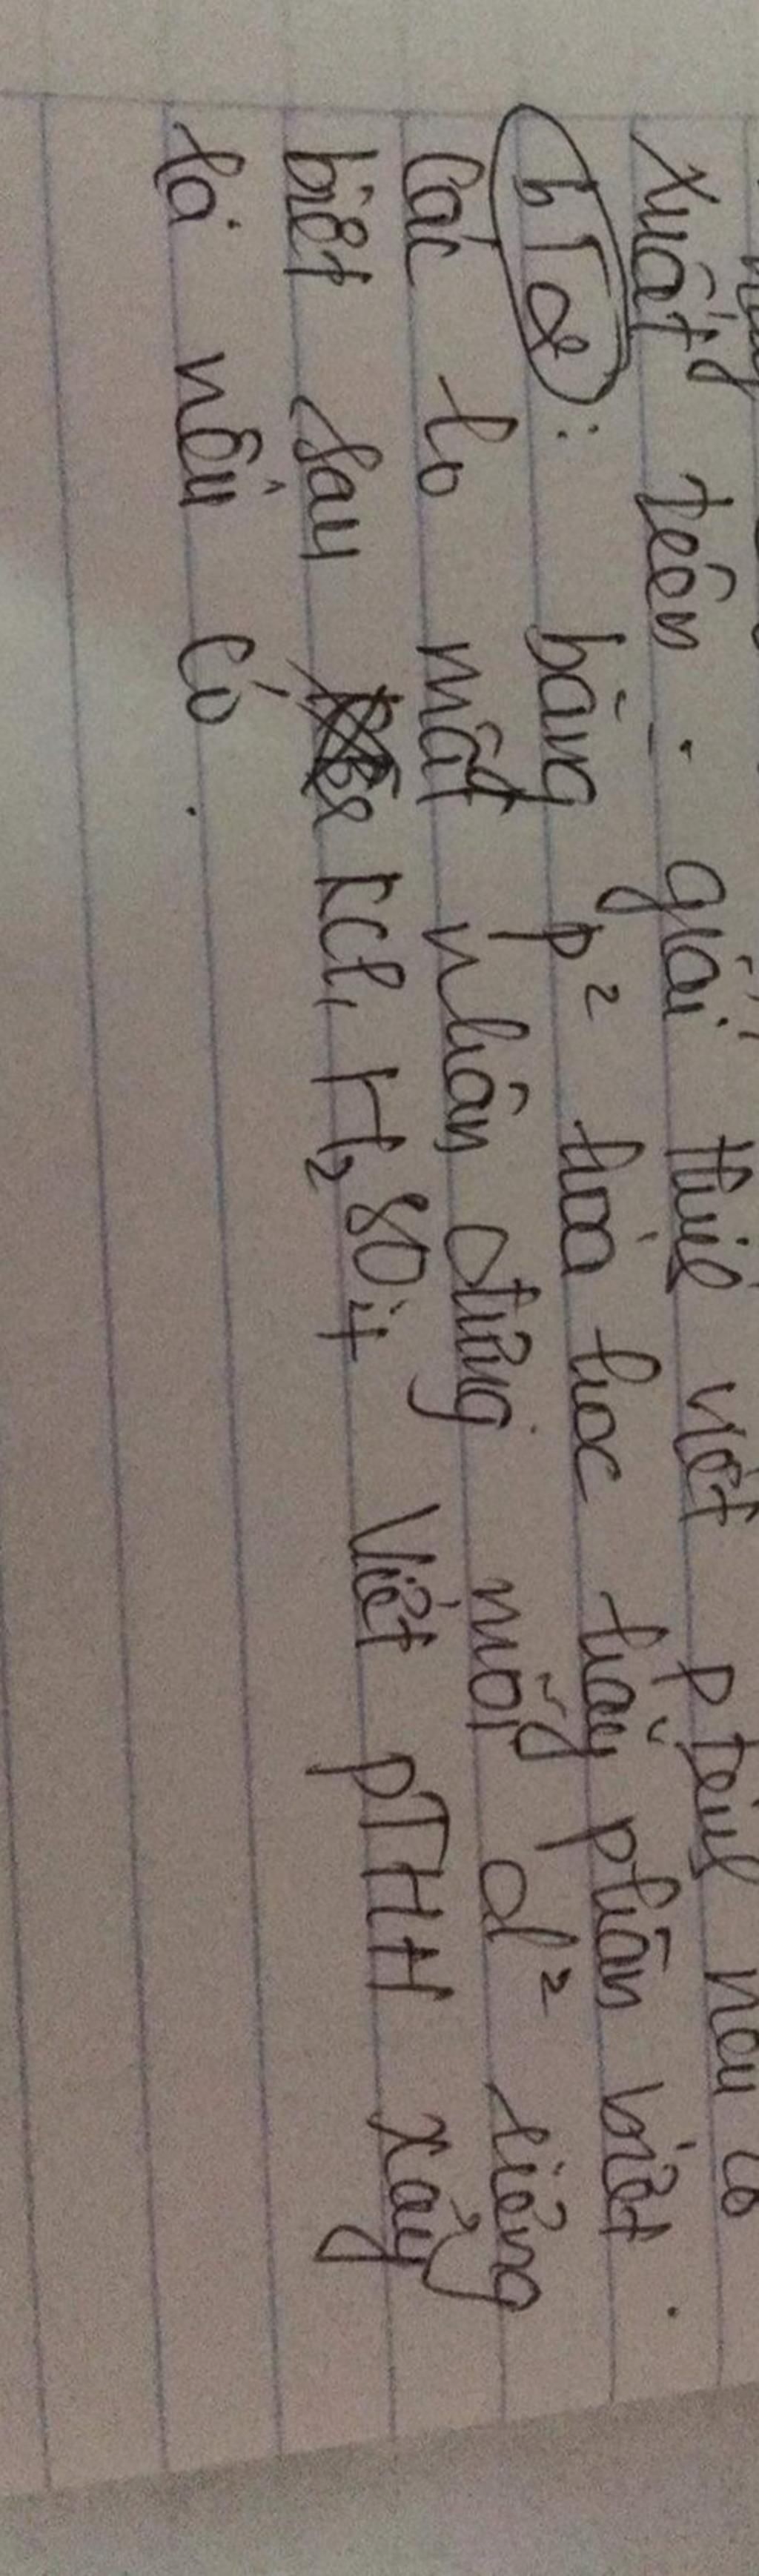 xuất trên. giải thích viết ptrình nếu có
bT2: bằng p² hoá học hãy phân biệt.
Các lo mất nhãn đựng mỗi d² riêng
biết sau KCl, H₂SO₄ Viết PTHH xảy
rả nếu có.